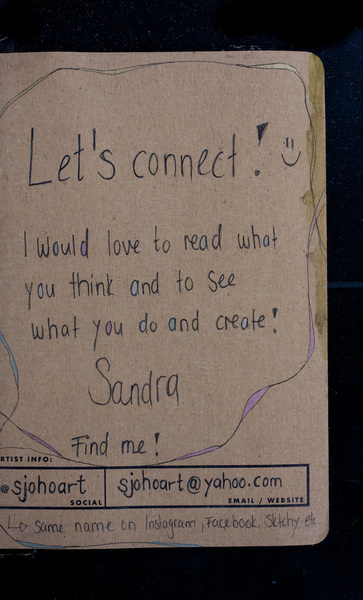 Let's connect! :)
I would love to read what
you think and to see
what you do and create!
Sandra
Find me!
RTIST INFO:
@sjohoart
SOCIAL
sjohoart@yahoo.com
EMAIL / WEBSITE
↳ same name on Instagram, Facebook, Sktchy etc.